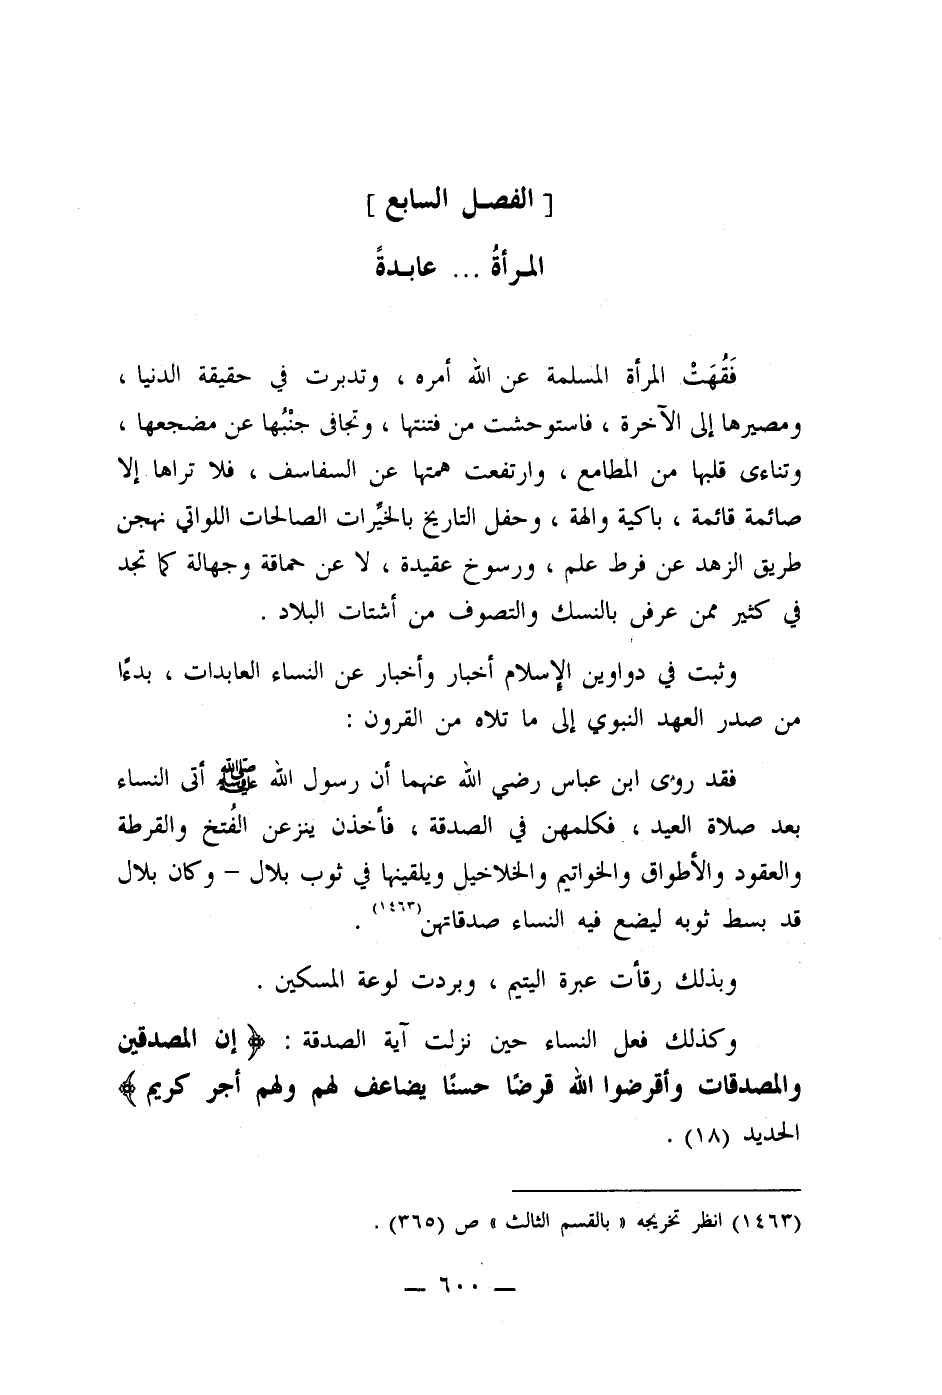 [ الفصل السابع ]
المرأةُ ... عابدةً
فَقُهَتْ المرأة المسلمة عن الله أمره ، وتدبرت في حقيقة الدنيا ،
ومصيرها إلى الآخرة ، فاستوحشت من فتنتها ، وتجافى جنْبُها عن مضجعها ،
وتناءى قلبها من المطامع ، وارتفعت همتها عن السفاسف ، فلا تراها إلا
صائمة قائمة ، باكية والهة ، وحفل التاريخ بالخيِّرات الصالحات اللواتي نهجن
طريق الزهد عن فرط علم ، ورسوخ عقيدة ، لا عن حماقة وجهالة كما تجد
في كثير ممن عرض بالنسك والتصوف من أشتات البلاد .
وثبت في دواوين الإسلام أخبار وأخبار عن النساء العابدات ، بدءًا
من صدر العهد النبوي إلى ما تلاه من القرون :
فقد روى ابن عباس رضي الله عنهما أن رسول الله ﷺ أتى النساء
بعد صلاة العيد ، فكلمهن في الصدقة ، فأخذن ينزعن الفُتخ والقرطة
والعقود والأطواق والخواتيم والخلاخيل ويلقينها في ثوب بلال – وكان بلال
قد بسط ثوبه ليضع فيه النساء صدقاتهن(١٤٦٣) .
وبذلك رقأت عبرة اليتيم ، وبردت لوعة المسكين .
وكذلك فعل النساء حين نزلت آية الصدقة : ﴿ إن المصدقين
والمصدقات وأقرضوا الله قرضًا حسنًا يضاعف لهم ولهم أجر كريم ﴾
الحديد (١٨) .
(١٤٦٣) انظر تخريجه « بالقسم الثالث » ص (٣٦٥) .
— ٦٠٠ —